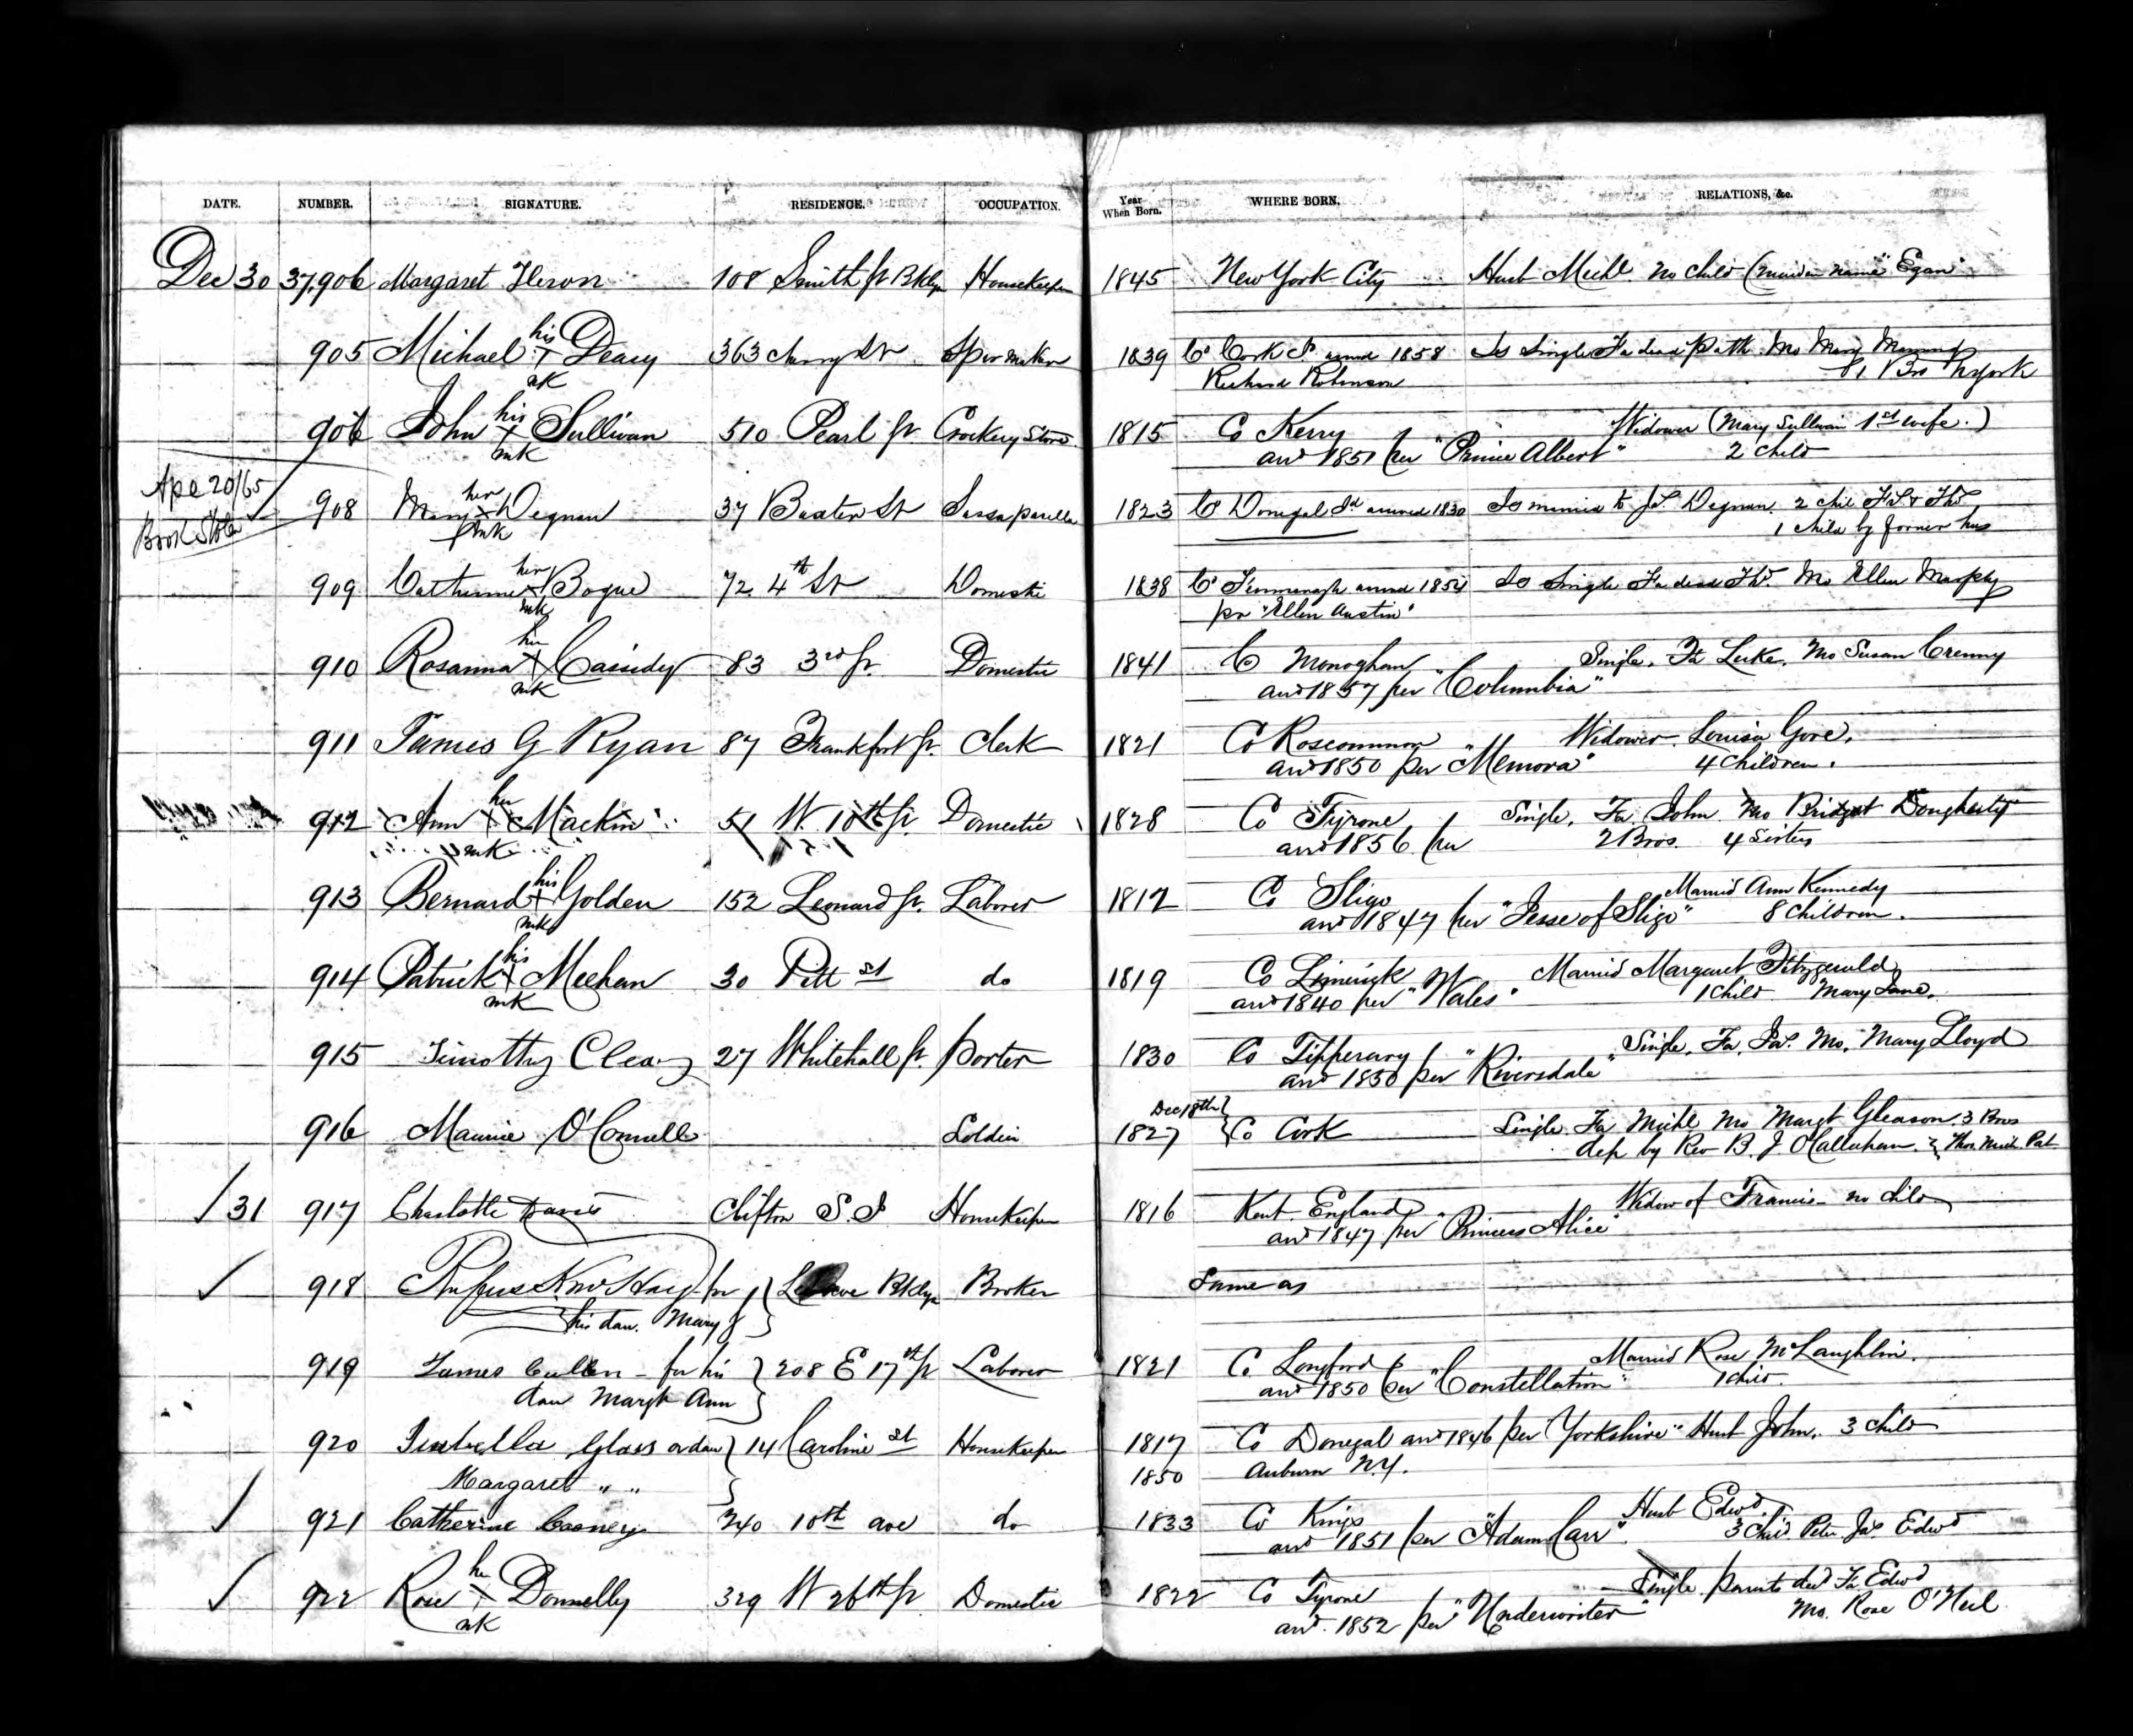 DATE. NUMBER. SIGNATURE. RESIDENCE. OCCUPATION. Year When Born. WHERE BORN. RELATIONS, &c.
Dec 30 37,906 Margaret Heron 108 Smith St Bklyn Housekeeper 1845 New York City Husb Michl. no child (maiden name "Egan"
his
905 Michael + Deasy 363 Cherry St 1839 Co Cork Id. arrived 1858 Is Single Fa dead Patk. Mo Mary
mk Richard Robinson 1 Bro N York
his
906 John + Sullivan 510 Pearl St Crockery Store 1815 Co Kerry Widower (Mary Sullivan 1st wife.)
mk arrd 1851 per "Prince Albert" 2 child
Apl 20/65
her
908 Mary + Degnan 37 Baxter St Sarsaparilla 1823 Co Donegal Id arrived 1830 Is married to Js. Degnan. 2 chil
mk 1 child by former hus
Book Stolen
her
909 Catherine + Bogue 72. 4th St Domestic 1838 Co Fermanagh arrived 1854 Is Single Fa dead Ths. Mo Ellen Murphy
mk pr "Ellen Austin"
her
910 Rosanna + Cassidy 83 3rd St. Domestic 1841 Co Monaghan Single. Fa Luke. Mo Susan Crenny
mk arrd 1857 per "Columbia"
911 James G Ryan 87 Frankfort St. Clerk 1821 Co Roscommon Widower. Louisa Gore.
arrd 1850 per "Memova" 4 Children.
her
912 Ann + Mackin 51 W. 10th St Domestic 1828 Co Tyrone Single. Fa. John. Mo Bridget Dougherty
mk arrd 1856 per 2 Bros. 4 Sisters
his
913 Bernard + Golden 152 Leonard St. Laborer 1812 Co Sligo Married Ann Kennedy
mk arrd 1847 per "Jesse of Sligo" 8 Children.
his
914 Patrick + Meehan 30 Pitt st do 1819 Co Limerick Married Margaret Fitzgerald
mk arrd 1840 per "Wales" 1 child Mary Jane.
915 Timothy Cleary 27 Whitehall St. Porter 1830 Co Tipperary Single. Fa. Jas. Mo. Mary Lloyd
arrd 1850 per "Riversdale"
Dec 18th
916 Maurice O'Connell Soldier 1827 Co Cork Single. Fa Michl Mo Margt Gleason. 3 Bros
dep by Rev B. J. O'Callaghan. Thos. Mich. Pat
31 917 Charlotte Davis Clifton S.I Housekeeper 1816 Kent. England Widow of Francis - no child
arrd 1847 per "Princess Alice"
918 Rufus for Bklyn Broker Same as
his dau. Mary
919 James Cullen - for his 208 E 17th St Laborer 1821 Co Longford Married Rose McLaughlin.
dau Margt Ann arrd 1850 per "Constellation" 1 child.
920 Isabella Glass or dau 14 Caroline st Housekeeper 1817 Co Donegal arrd 1846 per "Yorkshire" Husb John. 3 child
Margaret " " 1850 Auburn N.Y.
921 Catherine Cooney 240 10th ave do 1833 Co Kings Husb Edwd
arrd 1851 per "Adam Carr". 3 Chid. Peter Jas. Edwd
her
922 Rose + Donnelly 329 W 26th St Domestic 1822 Co Tyrone Single parents ded Fa. Edwd
mk arrd. 1852 per "Underwriter" Mo. Rose O'Neil